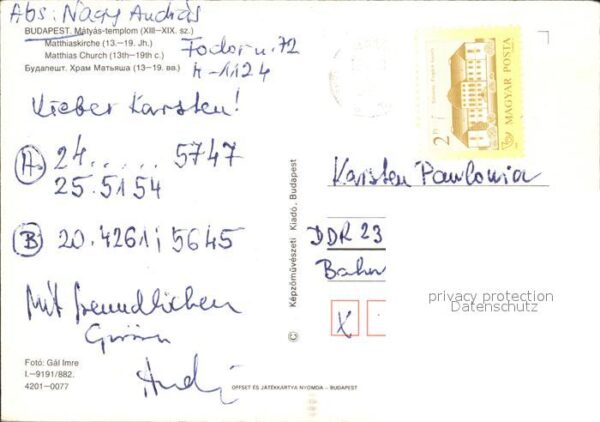 Abs: Nagy András
BUDAPEST. Mátyás-templom (XIII–XIX. sz.)
Matthiaskirche (13.–19. Jh.)
Matthias Church (13th–19th c.)
Будапешт. Храм Матьяша (13–19. вв.)
Fodor u. 72
H-1124
Lieber Karsten!
(A) 24. . . . . . 5747
25. 5154
(B) 20. 4261; 5645
Mit freundlichen
Grüssen
Andi
Fotó: Gál Imre
I.—9191/882.
4201–0077
OFFSET ÉS JÁTÉKKÁRTYA NYOMDA – BUDAPEST
© Képzőművészeti Kiadó, Budapest
2 Ft
MAGYAR POSTA
Karsten Pawlowia
DDR 23
Bahn
X
privacy protection
Datenschutz